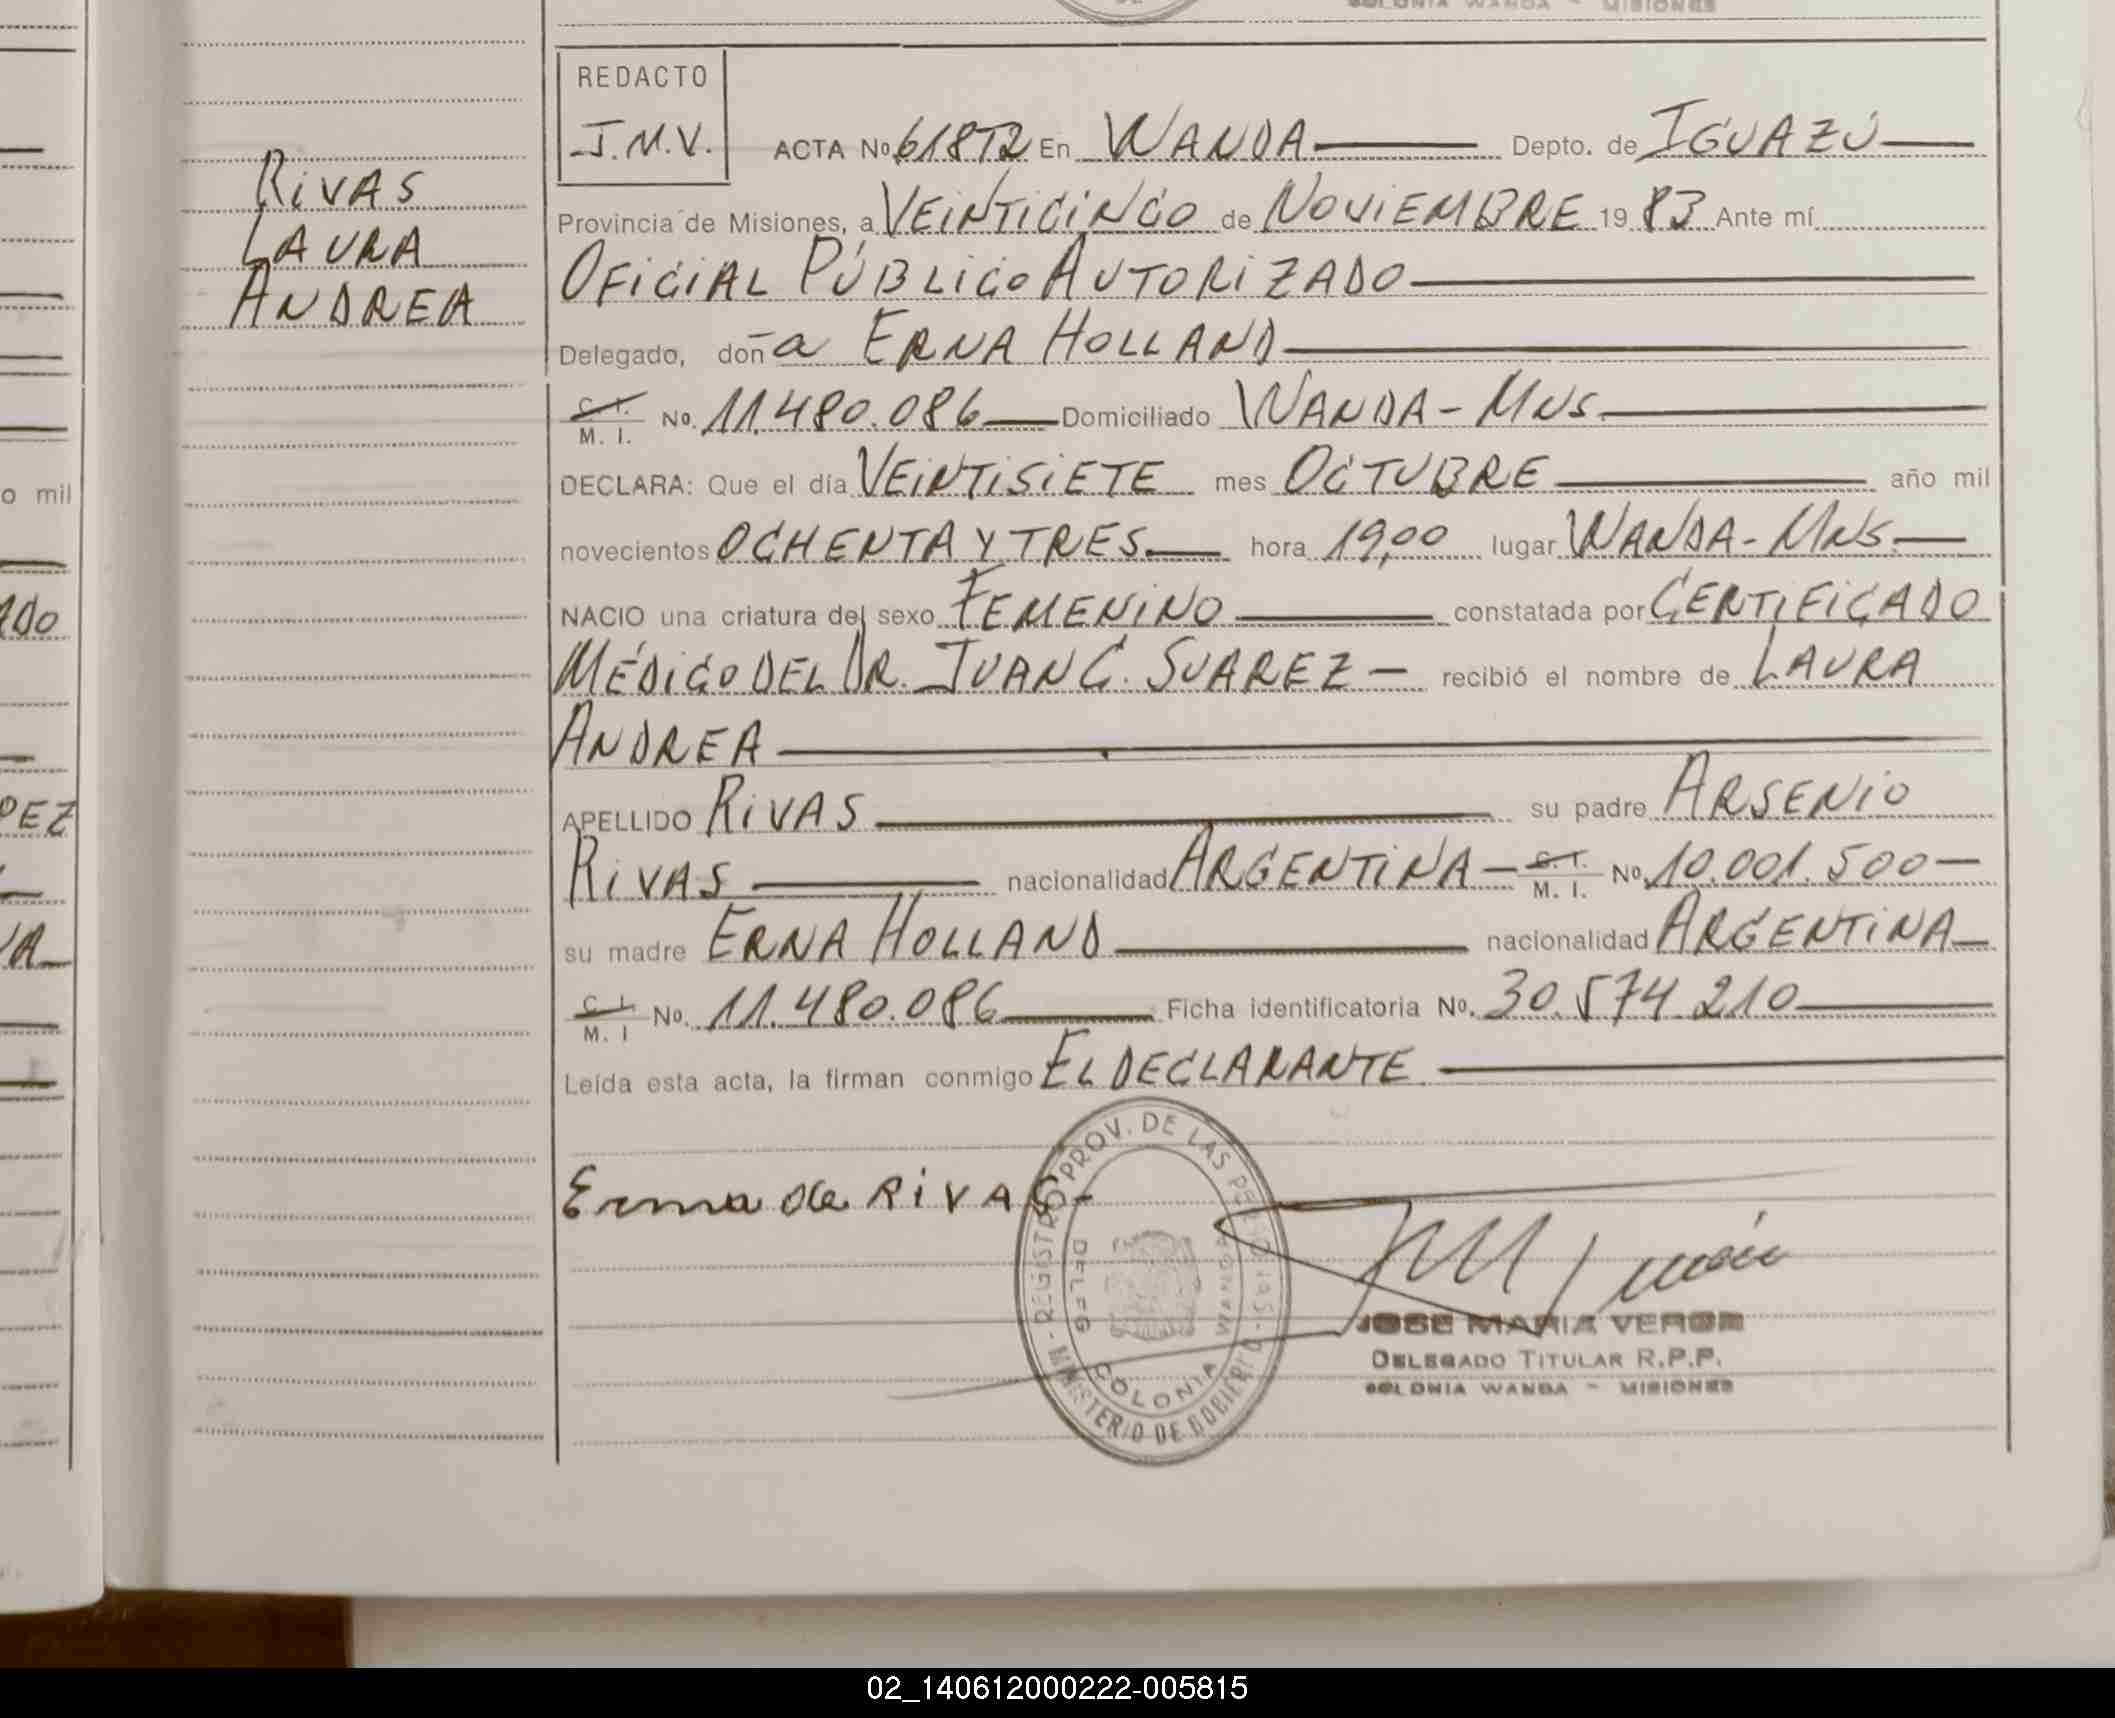 COLONIA WANDA - MISIONES
RIVAS
LAURA
ANDREA
REDACTO
J.M.V.
ACTA No 618T2 En WANDA Depto. de IGUAZÚ
Provincia de Misiones, a VEINTICINCO de NOVIEMBRE 1983 Ante mí
OFICIAL PÚBLICO AUTORIZADO
Delegado, doña ERNA HOLLAND
C. I. M. I. No. 11.480.086 Domiciliado WANDA - MNS.
DECLARA: Que el día VEINTISIETE mes OCTUBRE año mil
novecientos OCHENTA Y TRES hora 19,00 lugar WANDA - MNS.
NACIO una criatura del sexo FEMENINO constatada por CERTIFICADO
MÉDICO DEL DR. JUAN C. SUAREZ - recibió el nombre de LAURA
ANDREA
APELLIDO RIVAS su padre ARSENIO
RIVAS nacionalidad ARGENTINA - C. I. M. I. No. 10.001.500 -
su madre ERNA HOLLAND nacionalidad ARGENTINA
C. I. M. I No. 11.480.086 Ficha identificatoria No. 30.574.210
Leída esta acta, la firman conmigo EL DECLARANTE
Erna de RIVAS -
REGISTRO PROV. DE LAS PERSONAS - MINISTERIO DE GOBIERNO -
DELEG COLONIA WANDA
JOSE MARIA VERON
DELEGADO TITULAR R.P.P.
COLONIA WANDA - MISIONES
o mil
ADO
PEZ
VA
02_140612000222-005815